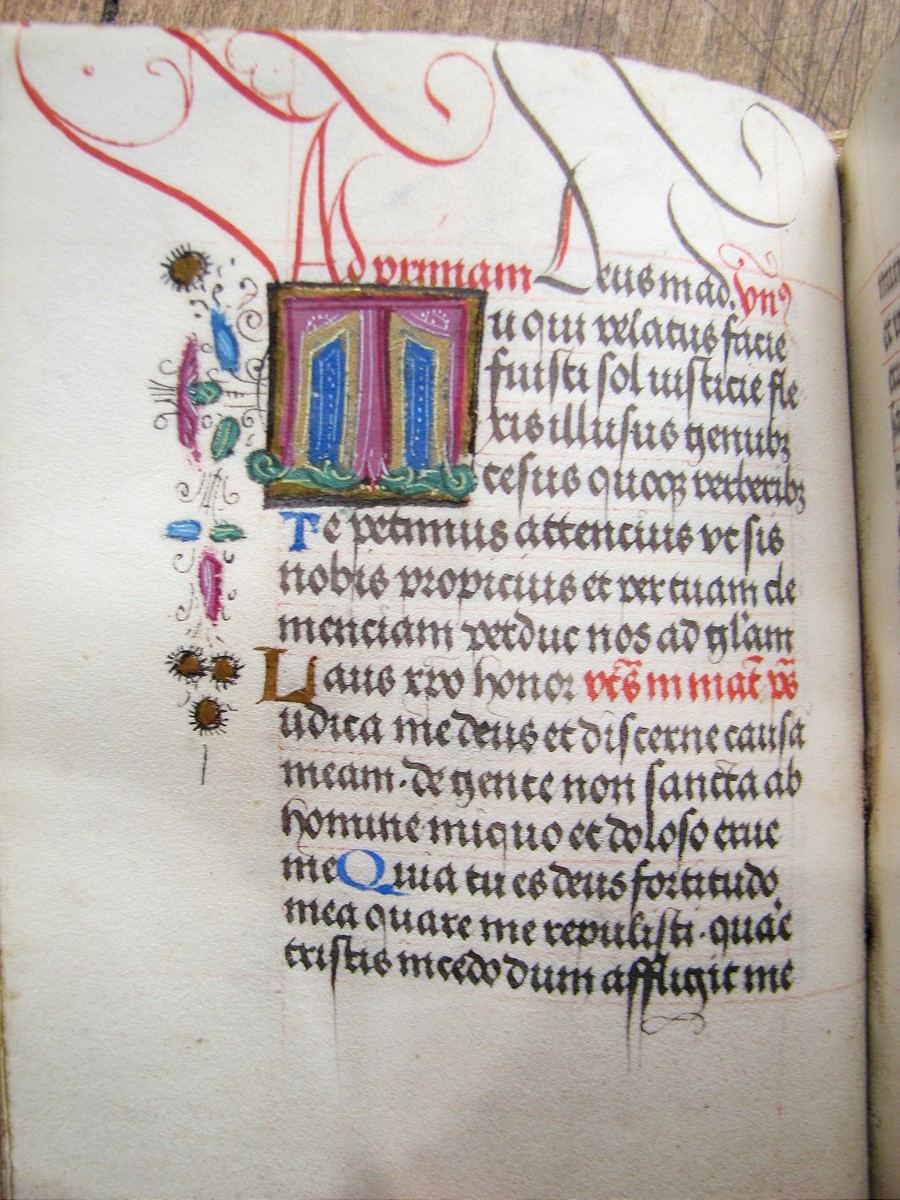 Ad primam Deus in ad. ymꝰ
Tu qui velatus facie
fuisti sol iusticie fle
xis illusus genubꝫ
cesus quoqꝫ verberibꝫ
Te petimus attencius vt sis
nobis propicius et per tuam cle
menciam perduc nos ad gl'am
Laus xpo honor
udica me deus et discerne causa
meam · de gente non sancta ab
homine iniquo et doloso erue
me Quia tu es deus fortitudo
mea quare me repulisti · quare
tristis incedo dum affligit me